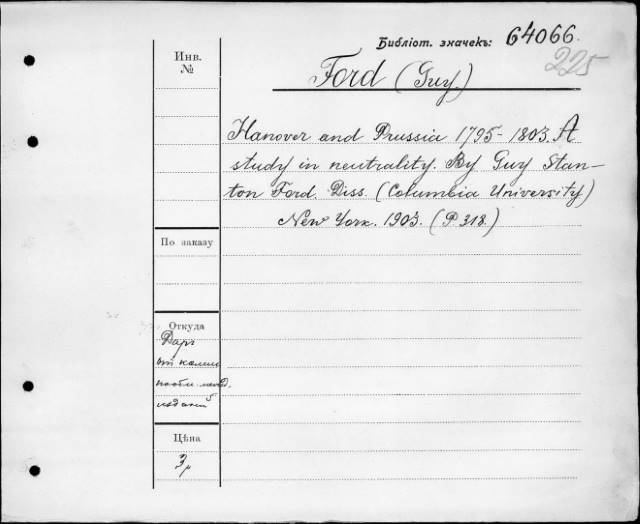 Библіот. значекъ: 64066.
225
Инв. №
Ford (Guy.)
Hanover and Prussia 1795-1803. A
study in neutrality. By Guy Stan-
ton Ford. Diss. (Columbia University.)
New York. 1903. (P. 318.)
По заказу
Откуда
Даръ
Цѣна
3р